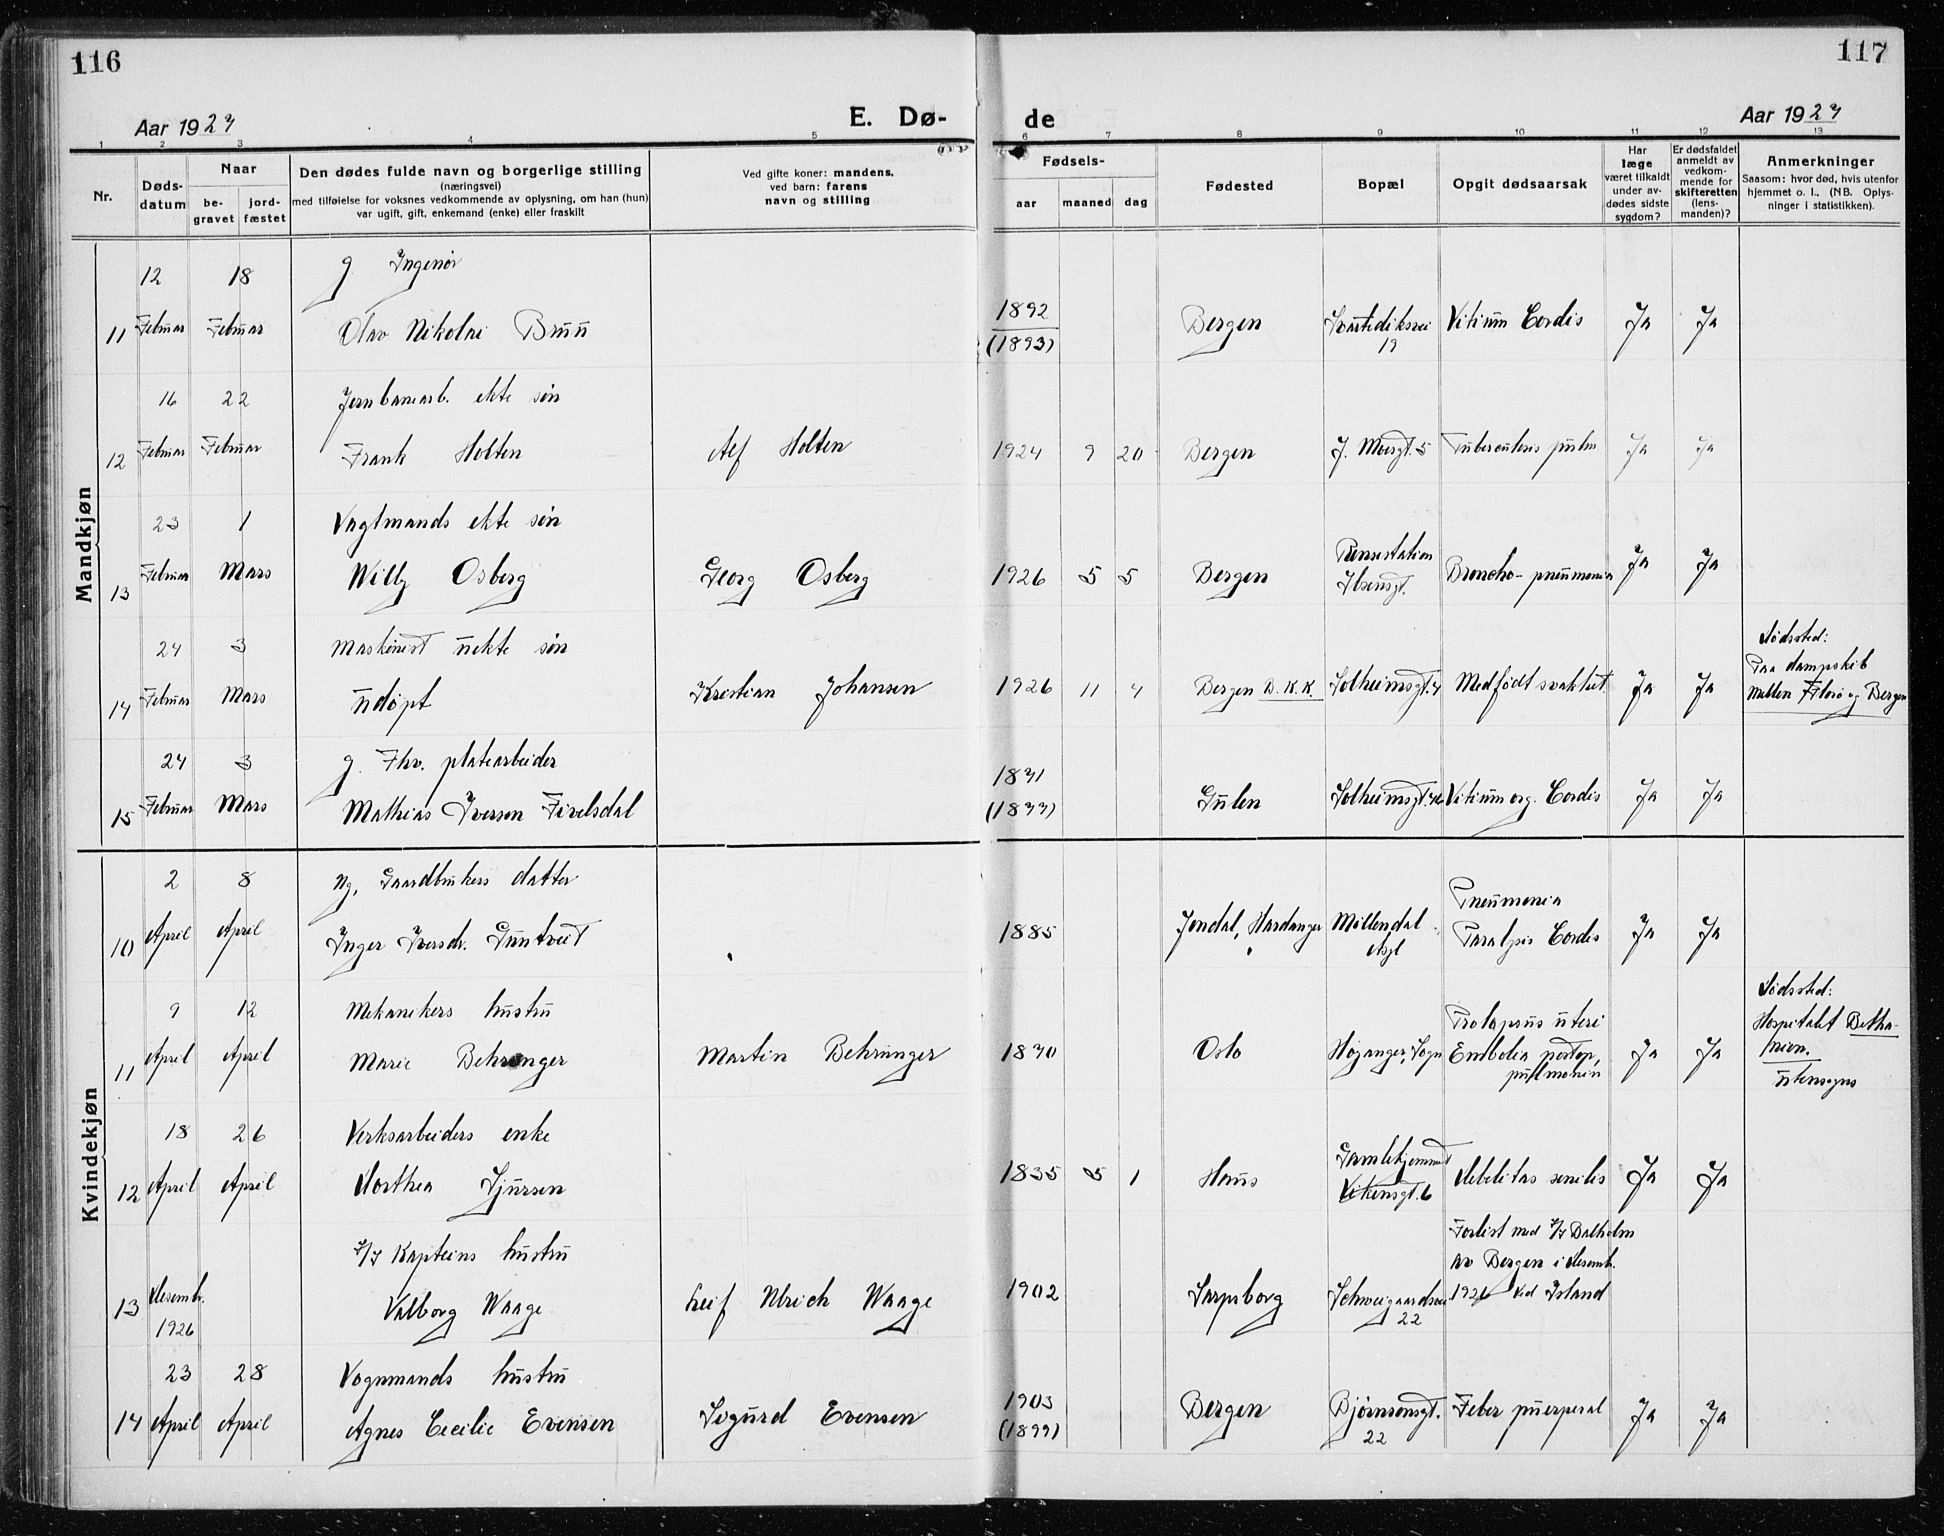 116
117
Aar 1927
E. Dø-
de
Aar 1927
1 2 3 4 5 6 7 8 9 10 11 12 13
Nr.
Døds-
datum
Naar
be-
gravet
jord-
fæstet
Den dødes fulde navn og borgerlige stilling
(næringsvei)
med tilføielse for voksnes vedkommende av oplysning, om han (hun)
var ugift, gift, enkemand (enke) eller fraskilt
Ved gifte koner: mandens,
ved barn: farens
navn og stilling
Fødsels-
aar maaned dag
Fødested
Bopæl
Opgit dødsaarsak
Har
læge
været tilkaldt
under av-
dødes sidste
sygdom?
Er dødsfaldet
anmeldt av
vedkom-
mende for
skifteretten
(lens-
manden)?
Anmerkninger
Saasom: hvor død, hvis utenfor
hjemmet o. l., (NB. Oplys-
ninger i statistikken).
Mandkjøn
12 18 g. Ingeniør
11 Februar Februar Olav Nikolai Bruu 1892 Bergen Vitium Cordis Ja Ja
(1893) 19
16 22 Jernbanearb. ekte søn
12 Februar Februar Frank Holten Alf Holten 1924 9 20 Bergen J. Moesgt. 5 Tuberculosis pulm Ja Ja
23 1 Vagtmands ekte søn
13 Februar Mars Willy Osberg Georg Osberg 1926 5 5 Bergen Rensestation
Ibsensgt. Broncho-pneumonia Ja Ja
24 3 Maskinist uekte søn
14 Februar Mars Udøpt Kristian Johansen 1926 11 7 Bergen D. K. K. Solheimsgt. 4 Medfødt svakhet Ja Ja
Dødssted:
Paa dampskib
mellem Florø og Bergen
24 3 g. Fhv. platearbeider
15 Februar Mars Mathias Iversen Fivelsdal 1871
(1877) Gulen Solheimsgt. Vitium org. Cordis Ja Ja
Kvindekjøn
2 8 Ug. Gaardbrukers datter
10 April April Inger Iversdr. Guntveit 1885 Jondal, Hardanger Møllendal
Asyl Pneumonia
Paralysis Cordis Ja Ja
9 12 Mekanikers hustru
11 April April Marie Behringer Martin Behringer 1870 Oslo Høyanger, Sogn Prolapsus uteri
Embolia postop,
pulmonin Ja Ja
Dødssted:
Hospitalet Betha-
nien.
utensogns
18 26 Verksarbeiders enke
12 April April Dorthea Sjursen 1835 5 1 Haus Gamlehjemmet
Vikensgt. 6 Debilitas senilis Ja Ja
S/S Kapteins hustru
13 Desemb.
1926 Valborg Waage Leif Ulrich Waage 1902 Sarpsborg Schweigaardsvei
22 Forlist med S/S Balholm
av Bergen i Desemb.
1926 ved Island
23 28 Vognmands hustru
14 April April Agnes Cecilie Evensen Sigurd Evensen 1903
(1899) Bergen Bjørnsonsgt.
22 Feber puerperal Ja Ja